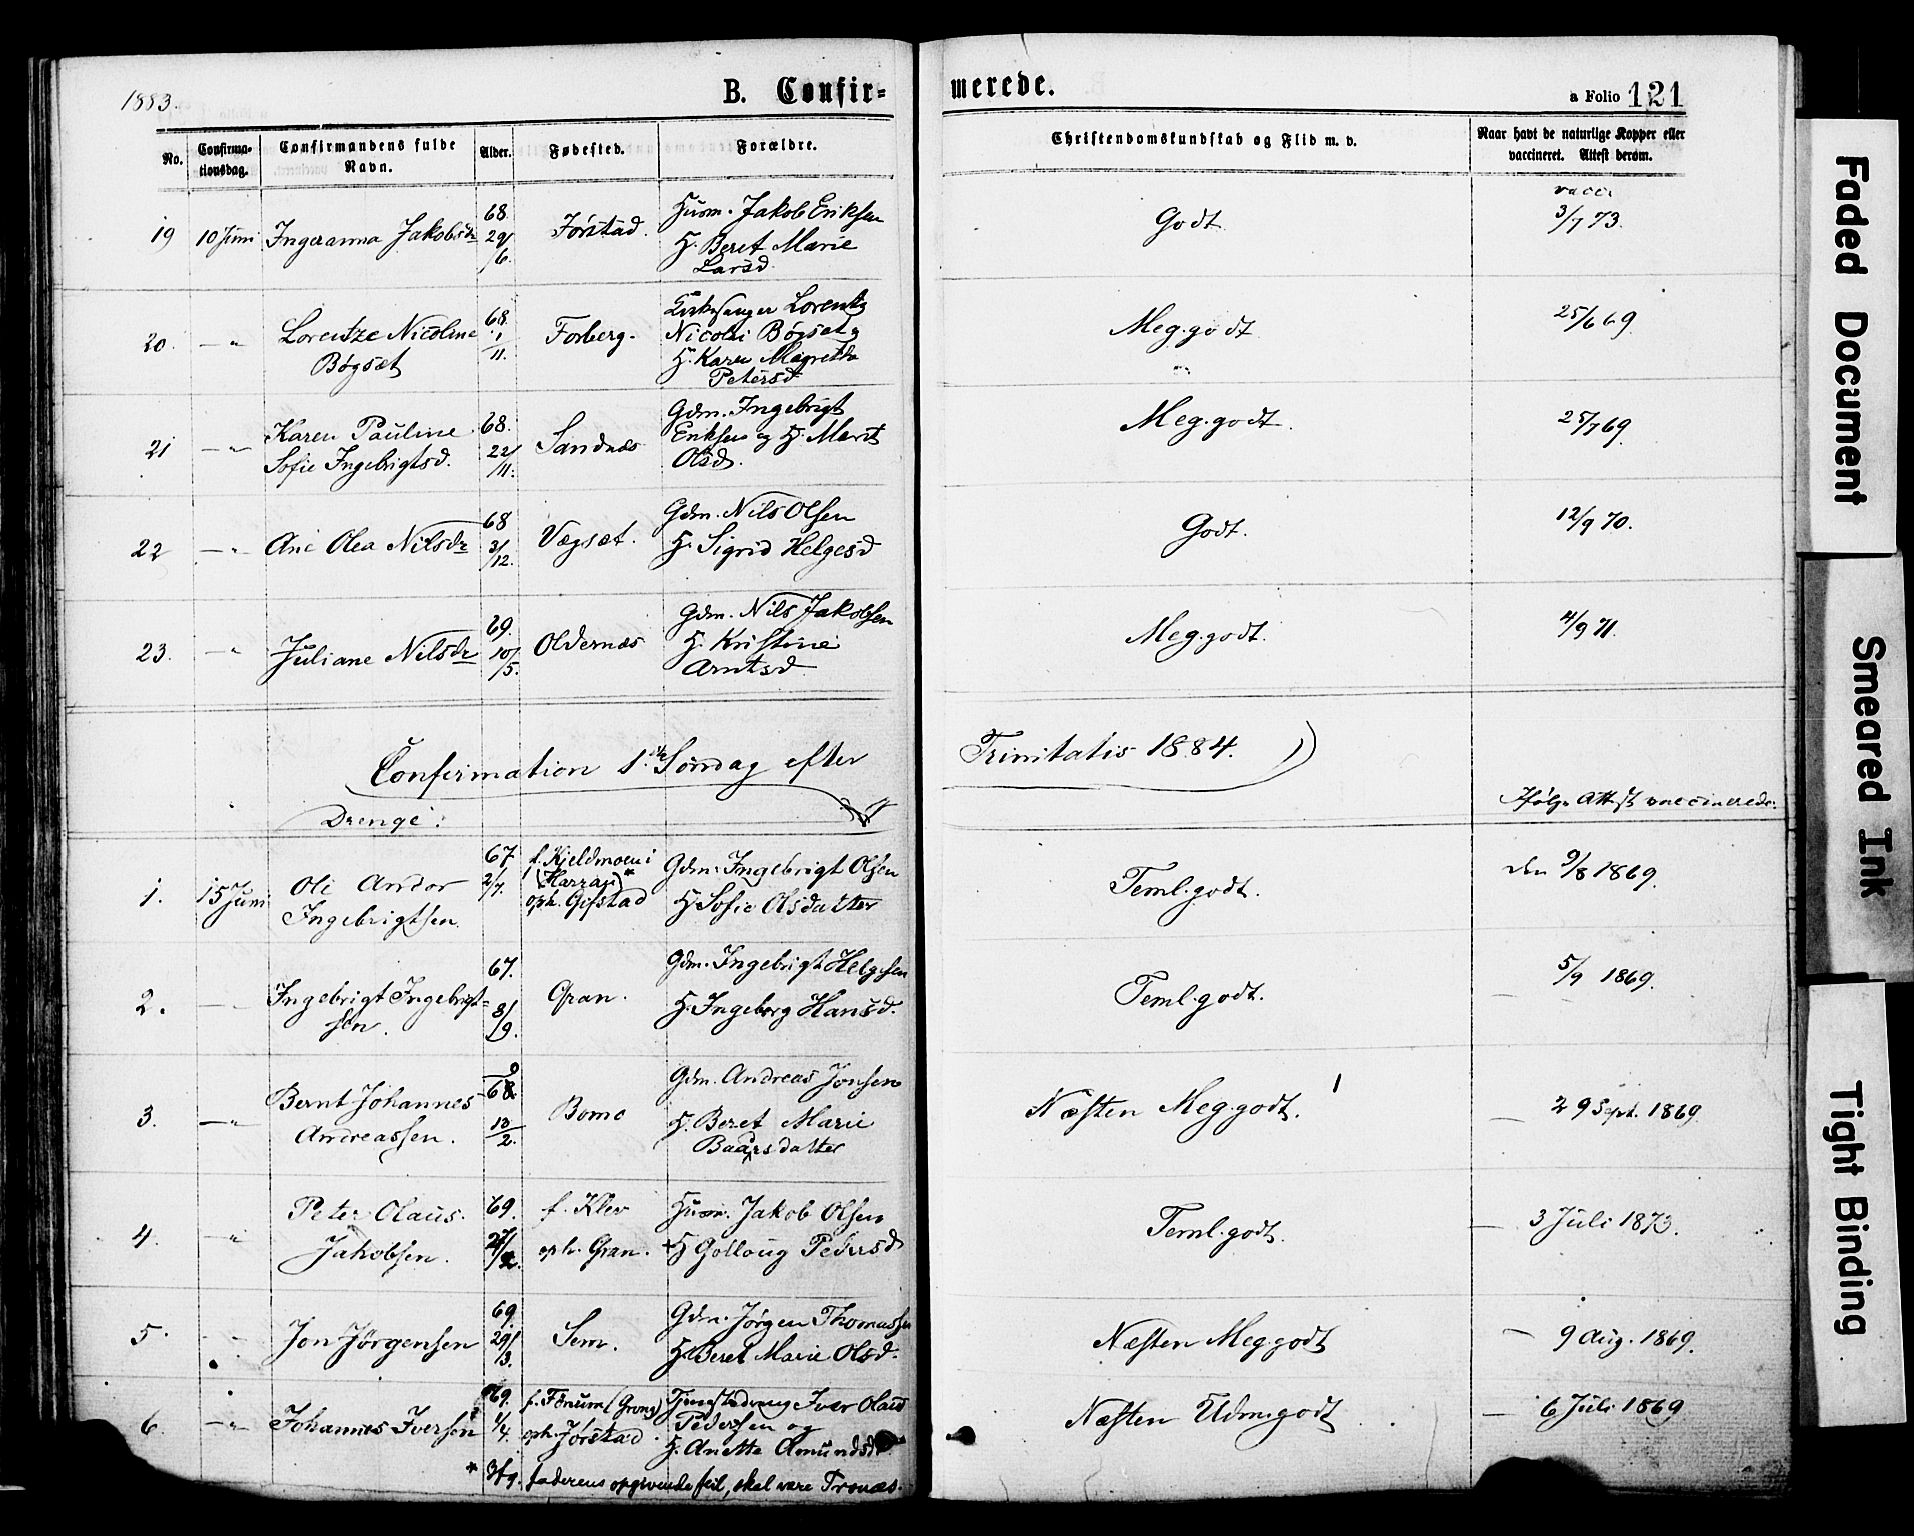 1883.
B. Confir=
merede.
a Folio 121
No.
Confirma-
tionsdag.
Confirmandens fulde
Navn.
Alder.
Fødested.
Forældre.
Christendomskundskab og Flid m. v.
Naar havt de naturlige Kopper eller
vaccineret. Attest derom.
19 10 Juni Ingeranna Jakobsdr 68. 29/6. Jørstad. Husm. Jakob Eriksen
H. Beret Marie
Larsd.
Godt.
vacc.
3/7 73.
20. —„ Lorentze Nicoline
Bøgsæt
68. 1/11. Forberg. Kirkesanger Lorentz
Nicolai Bøgset og
H. Karen Magretha
Petersd.
Meg. godt
25/6 69
21 —„ Karen Pauline
Sofie Ingebrigtsd.
68. 22/11. Sandnæs Gdm. Ingebrigt
Eriksen og H. Marit
Olsd.
Meg. godt.
25/7 69.
22 —„ Ane Olea Nilsdr 68 3/12. Vægsæt. Gdm. Nils Olsen
H. Sigrid Helgesd
Godt.
12/9 70.
23. —„ Juliane Nilsdr 69. 10/5. Oldernæs Gdm. Nils Jakobsen
H. Kristine
Arntsd.
Meg. godt.
4/9 71.
Confirmation 1.ste Søndag efter
Trinitatis 1884.
Drenge:
Ifølge Attest vaccinerede:
1. 15 Juni Ole Andor
Ingebrigtsen.
67. 2/7. f. Kjeldmoen i
(Harran)*
oph. Gifstad
Gdm. Ingebrigt Olsen
H. Sofie Olsdatter
Teml. godt.
den 9/8 1869.
2. —„ Ingebrigt Ingebrigt=
sen.
67. 8/9. Gran. Gdm. Ingebrigt Helgesen
H. Ingeborg Hansd.
Teml. godt.
— 5/9 1869.
3. —„ Bernt Johannes
Andreassen.
68. 13/2. Bomo Gdm. Andreas Jonsen
H. Beret Marie
Baarsdatter
Næsten Meg. godt.
— 29 Sept. 1869.
4. „ Peter Olaus
Jakobsen.
69. f. Klev
oph. Gran.
Husm. Jakob Olsen
H Golloug Pedersd
Teml. godt.
— 3 Juli 1873.
5. Jon Jørgensen 69. 29/3. Sem. Gdm. Jørgen Thomassen
H. Beret Marie Olsd.
Næsten Meg. godt
— 9 Aug. 1869.
6. —„ Johannes Iversen 69. 1/4. f. Fornum (Grong)
oph. Jørstad.
Iver Olaus
Pedersen og
H. Anette Amundsdr
Næsten Udm. godt
— 6 Juli 1869
* faderens opgivende feil, skal være Tronæs.
Faded Document
Smeared Ink
Tight Binding